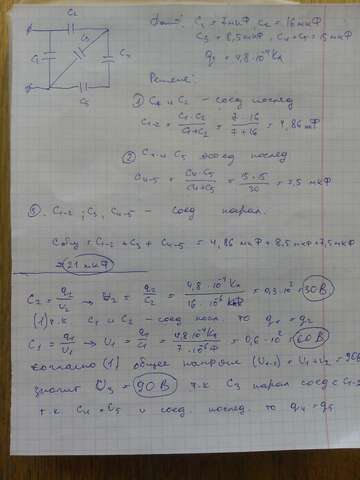 C2
Дано: C1 = 7 мкФ, C2 = 16 мкФ
C1
C3
C4
C3 = 8,5 мкФ, C4 = C5 = 15 мкФ
q1 = 4,8 · 10⁻⁴ Кл
C5
Решение:
① C1 и C2 — соед послед
C1-2 = C1 · C2 / C1 + C2 = 7 · 16 / 7 + 16 = 4,86 мФ
② C4 и C5 соед послед
C4-5 = C4 · C5 / C4 + C5 = 15 · 15 / 30 = 7,5 мкФ
③. C1-2; C3, C4-5 — соед парал.
Cобщ = C1-2 + C3 + C4-5 = 4,86 мкФ + 8,5 мкФ + 7,5 мкФ
= 21 мкФ
C2 = q2 / U2 → U2 = q2 / C2 = 4,8 · 10⁻⁴ Кл / 16 · 10⁻⁶ Ф = 0,3 · 10² = 30 В
(1) т.к C1 и C2 — соед посл то q1 = q2
C1 = q1 / U1 → U1 = q1 / C1 = 4,8 · 10⁻⁴ Кл / 7 · 10⁻⁶ Ф = 0,6 · 10² = 60 В
согласно (1) общее напряж (U1-2) = U1 + U2 = 90 В
значит U3 = 90 В т.к C3 парал соед с C1-2
т.к C4 и U5 и соед послед. то q4 = q5